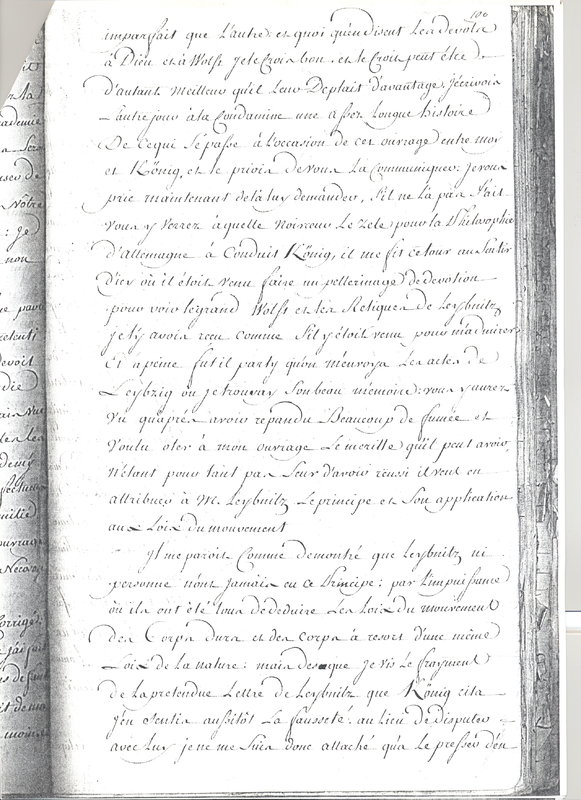 100
imparfait que l'autre, et quoi qu'en disent les devots
à Dieu et à Wolff je le crois bon. et le crois peut etre
d'autant meilleur qu'il leur Deplait d'avantage. J'ecrivois
L'autre jour à la Condamine une assez longue histoire
De ce qui s'é passé à l'occasion de cet ouvrage entre moi
et König, et le priois de vous La Communiquer: je vous
prie maintenant de la luy demander, s'il ne l'a pas fait
vous y verrez à quelle noirceur Le Zele pour la Philosophie
d'Allemagne à Conduit König, il me fit ce tour au sortir
D'icy où il étoit venu faire un pellerinage de devotion
pour voir le grand Wolff et les Reliques de Leybnitz
je l'y avois reçu comme s'il y étoit venu pour m'admirer
Et a peine fut il party qu'on m'envoya Les actes de
Leybzig où je trouvay son beau memoire: vous y aurez
Vu qu'aprés avoir repandu Beaucoup de fumée et
Voulu oter à mon ouvrage Le merite qu'il peut avoir,
N'étant pour tant pas Seur d'avoir réussi il veut en
attribuer à M. Leybnitz Le principe et Son application
aux Loix du mouvement
Il me parois Comme demontré que Leybnitz ni
personne n'ont jamais eu ce Principe: par l'impuissance
où ils ont été tous de deduire Les Loix du mouvement
des Corps durs et des Corps à resort d'une même
Loix de la nature: mais des que je vis Le fragment
de la pretendue Lettre de Leybnitz que König cita
J'en sentis aussitôt La fausseté. au lieu de disputer
avec luy je ne me suis donc attaché qu'à le presser d'en